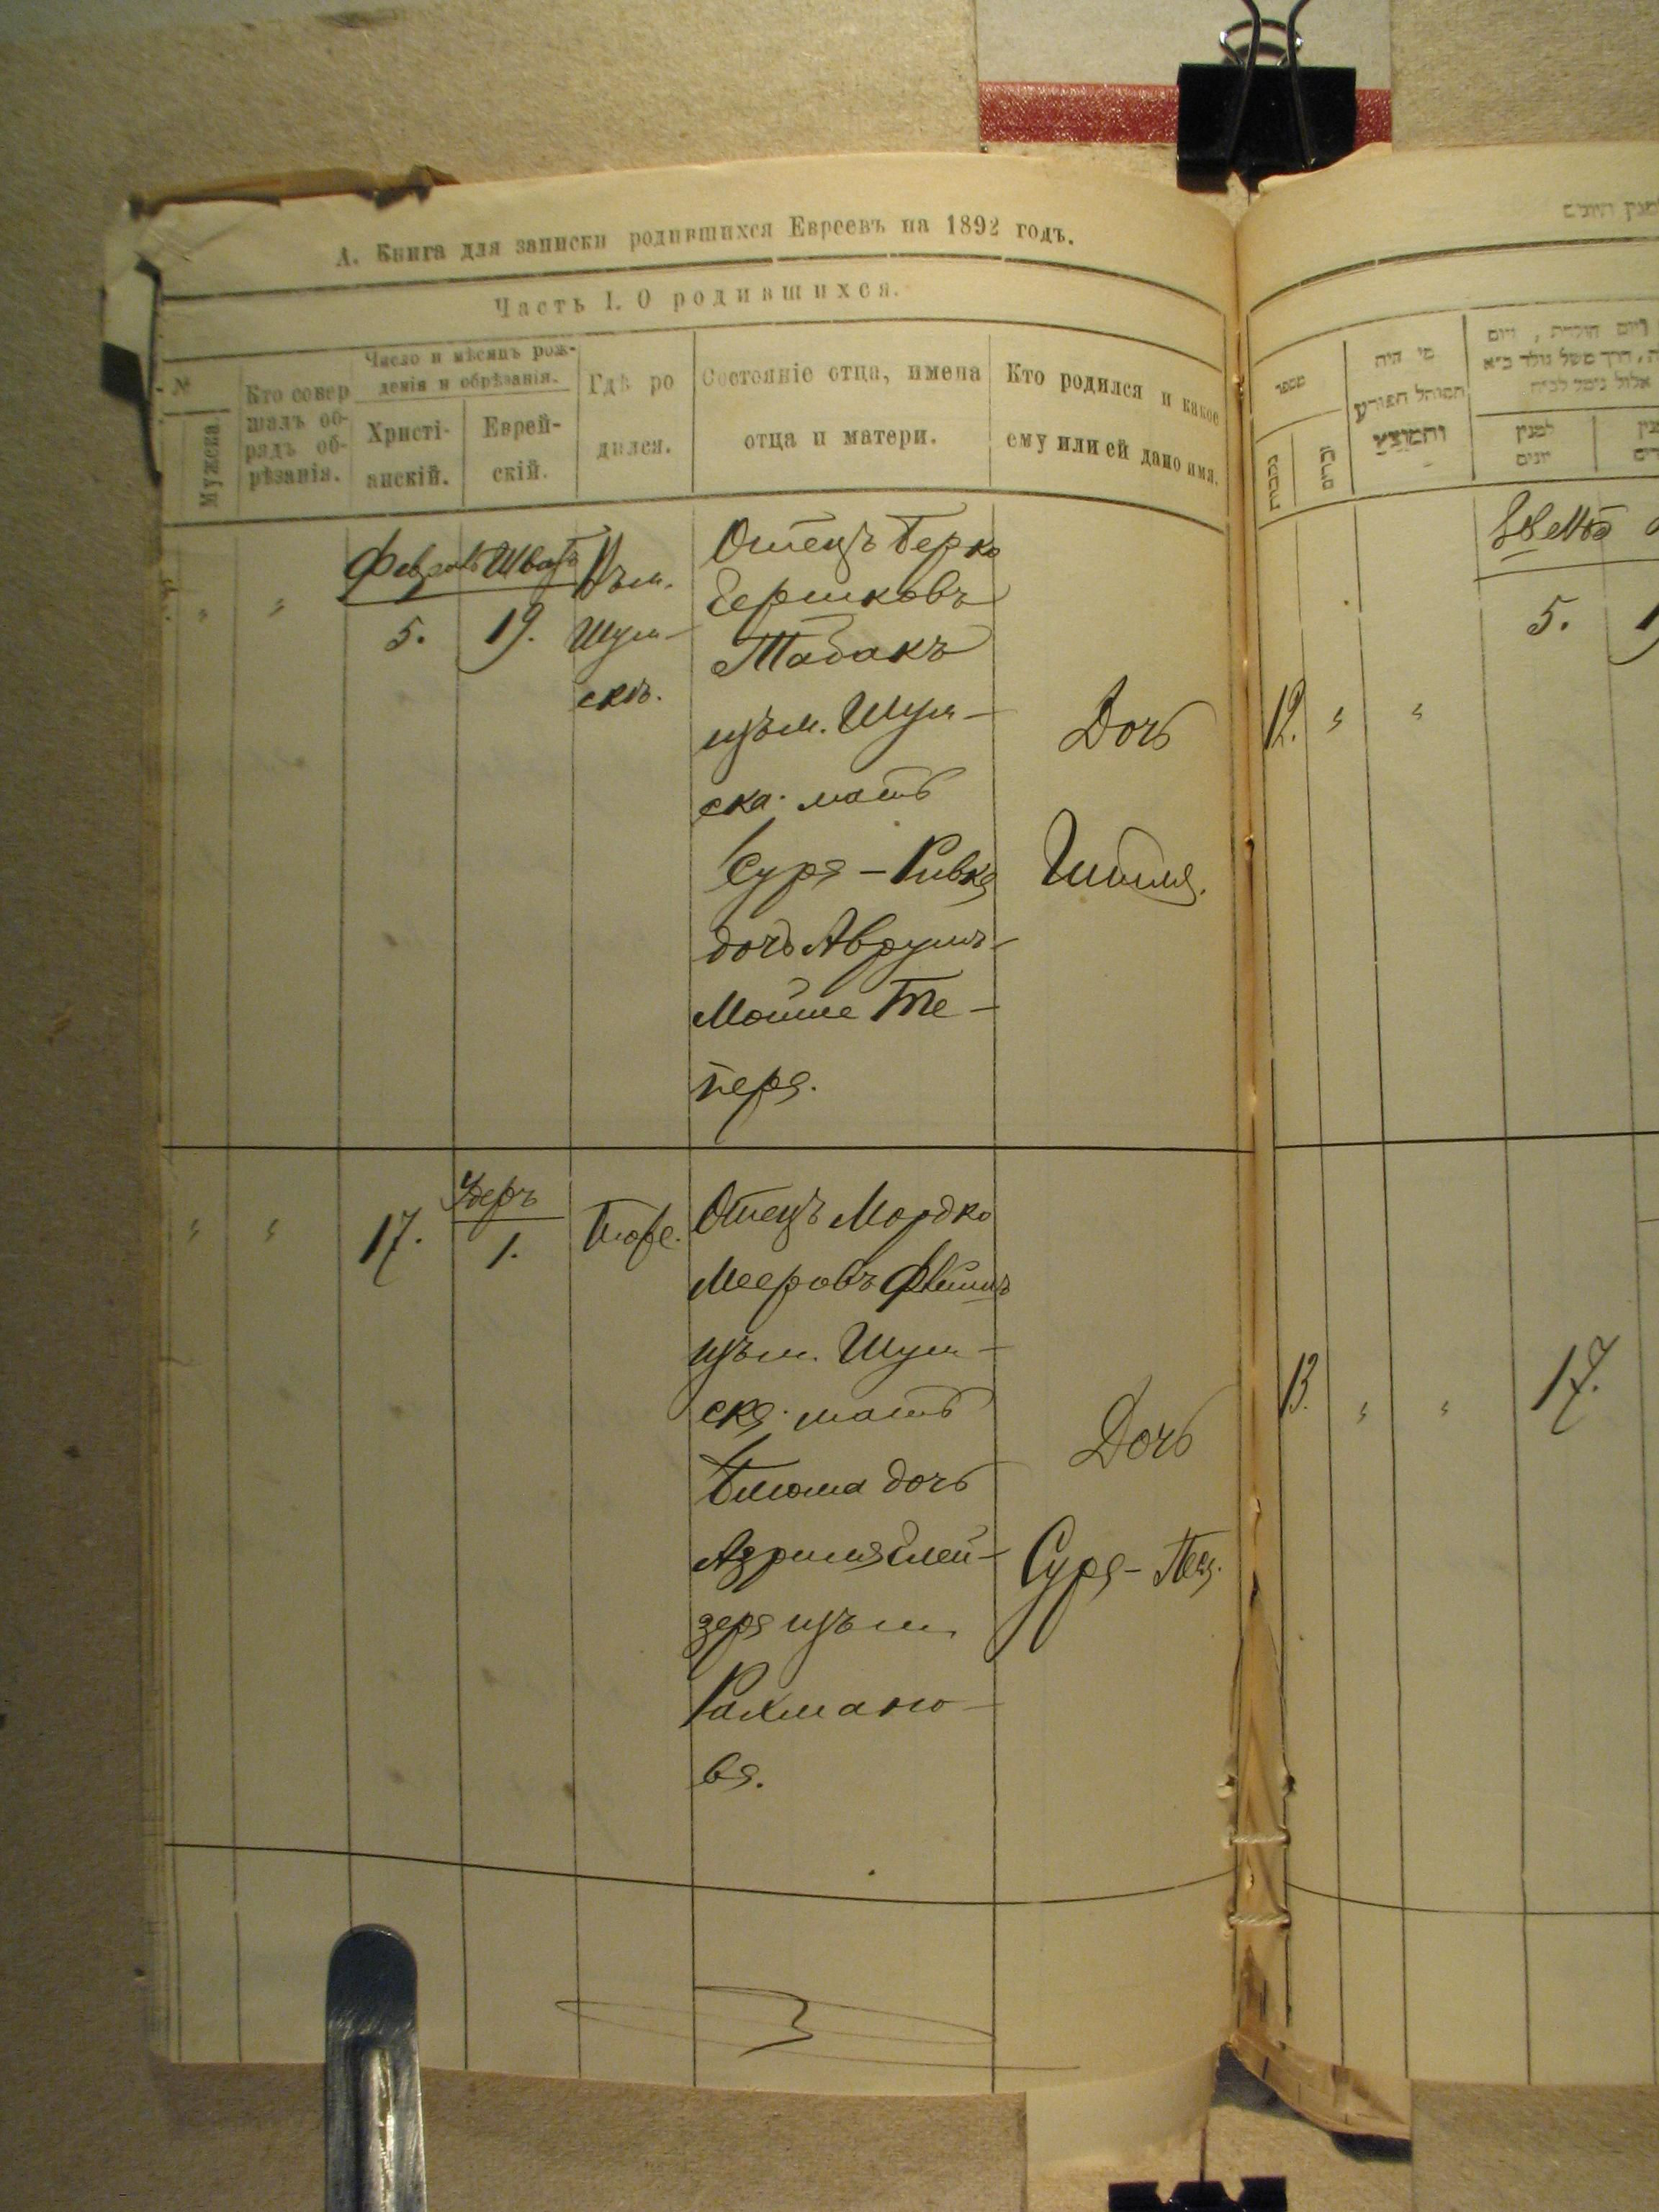 А. Книга для записки родившихся Евреевъ на 1892 годъ.
Часть I. О родившихся.
№
Мужска.
Кто совер
шалъ об-
рядъ об-
рѣзанія.
Число и мѣсяцъ рож-
денія и обрѣзанія.
Христі-
анскій.
Еврей-
скій.
Гдѣ ро
дился.
Состояніе отца, имена
отца и матери.
Кто родился и какое
ему или ей дано имя.
Шватъ
5.
19.
Въ м.
Шум-
скѣ.
Отецъ Берко
Гершковъ
Табакъ
изъ м. Шум-
ска. мать
Сура-Ривка
дочь Аврумъ-
Мойше Те-
пера.
Дочь
17.
Адеръ
1.
Отецъ Мордко
Мееровъ
изъ м. Шум-
ска. мать
Блюма дочь
Азриля Элей-
зера изъ м.
Рахмано-
ва.
Дочь
Сура-
מספר
מי היה
המוהל הפורע
והמוצץ
למנין
יונים
5.
12.
13.
17.